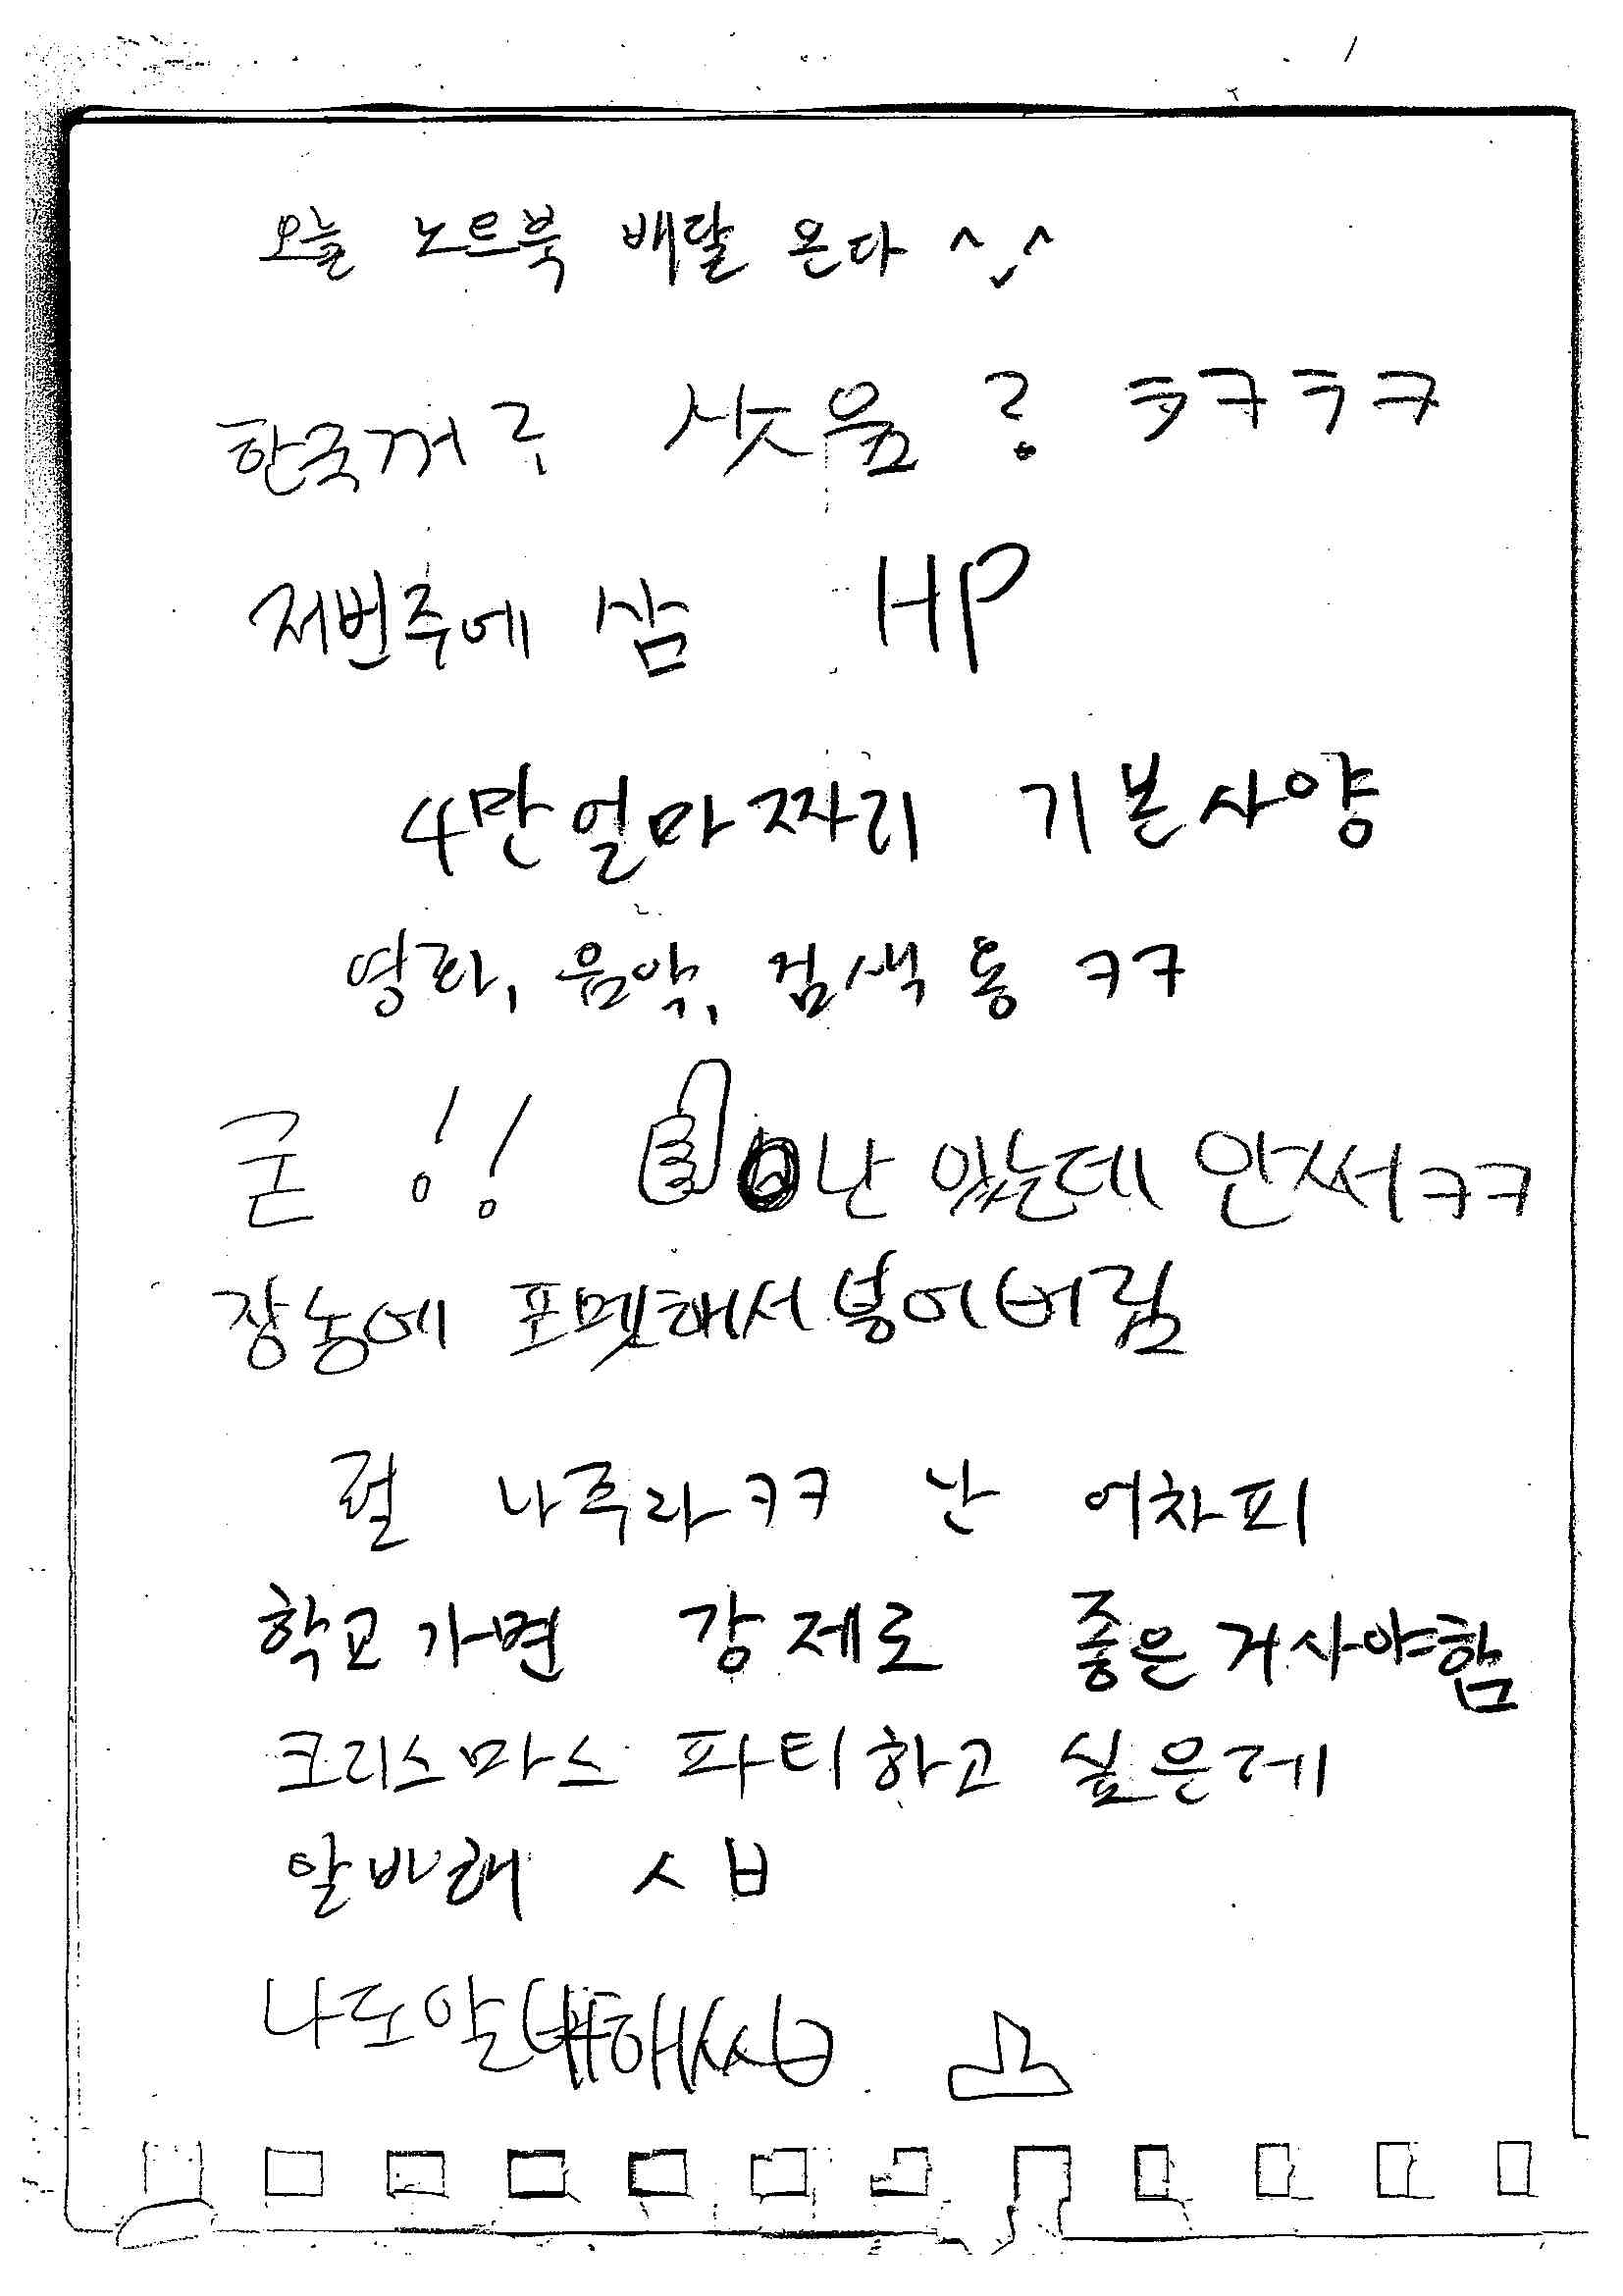 오늘 노트북 배달 온다 ^^
한국꺼루 삿음? ㅋㅋㅋㅋ
저번주에 삼 HP
4만얼마짜리 기본사양
영화, 음악, 검색 용 ㅋㅋ
굳!! 난 있는데 안써ㅋㅋ
장농에 포멧해서 넣어버림
헐 나주라ㅋㅋ 난 어차피
학교가면 강제로 좋은거사야함
크리스마스 파티하고 싶은데
알바해 ㅅㅂ
나도알바해ㅅㅅㅂ